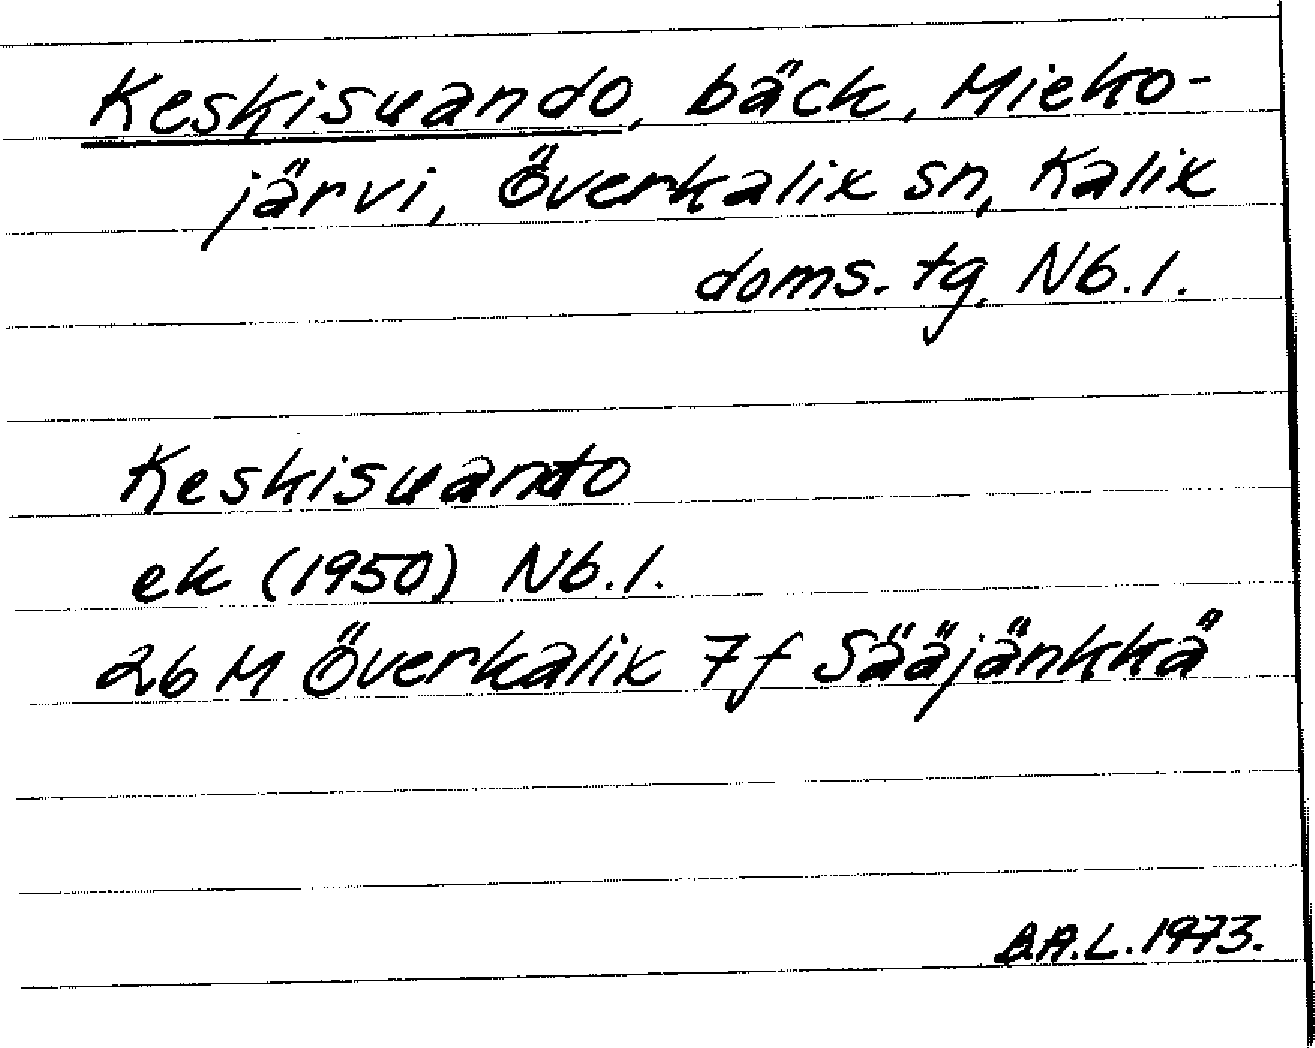 Keskisuando, bäck, Mieko-
järvi, Överkalix sn, Kalix
doms. tg. Nb. l.
Keskisuanto
ek (1950) Nb. l.
26 M Överkalix 7f Sääjänkkä
B.A.L. 1973.